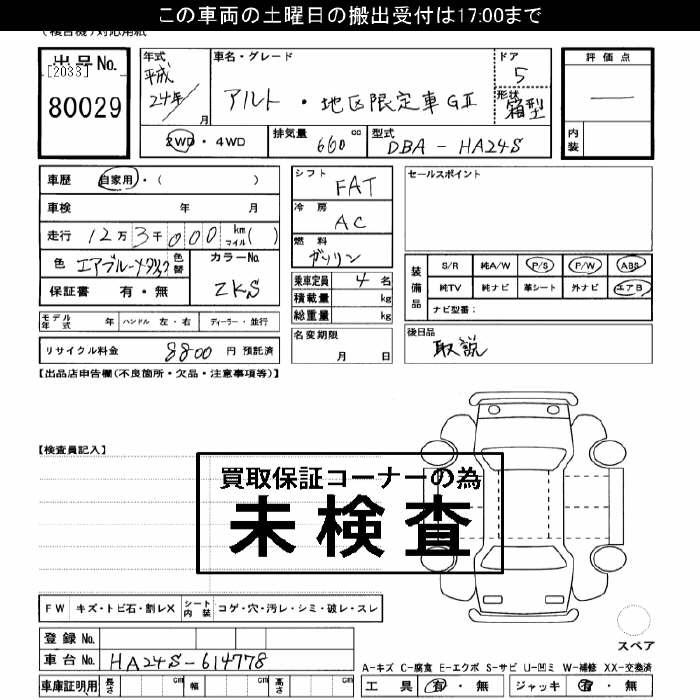 この車両の土曜日の搬出受付は17:00まで
(複合機)対応用紙
出品No.
[2033]
80029
年式
平成
24年
月
車名・グレード
アルト・地区限定車GⅡ
ドア
5
形状
箱型
評価点
—
内装
2WD・4WD
排気量
660
cc
型式
DBA-HA24S
車歴 自家用・( )
車検 年 月
走行 12万3千000 km マイル( )
色 エアブルーメタリック 色替
カラーNo.
ZKS
保証書 有・無
モデル年式 年 ハンドル 左・右 ディーラー・並行
リサイクル料金 8800 円 預託済
シフト
FAT
冷房
AC
燃料
ガソリン
乗車定員 4 名
積載量 kg
総重量 kg
名変期限
月 日
セールスポイント
装備品
S/R 純A/W P/S P/W ABS
純TV 純ナビ 革シート 外ナビ エアB
ナビ型番:
後日品
取説
【出品店申告欄(不良箇所・欠品・注意事項等)】
【検査員記入】
買取保証コーナーの為
未検査
FW キズ・トビ石・割レX シート内装 コゲ・穴・汚レ・シミ・破レ・スレ
登録No.
車台No. HA24S-614778
車庫証明用 長さ cm 幅 cm 高さ cm
スペア
A-キズ C-腐食 E-エクボ S-サビ U-凹ミ W-補修 XX-交換済
工具 有・無 ジャッキ 有・無